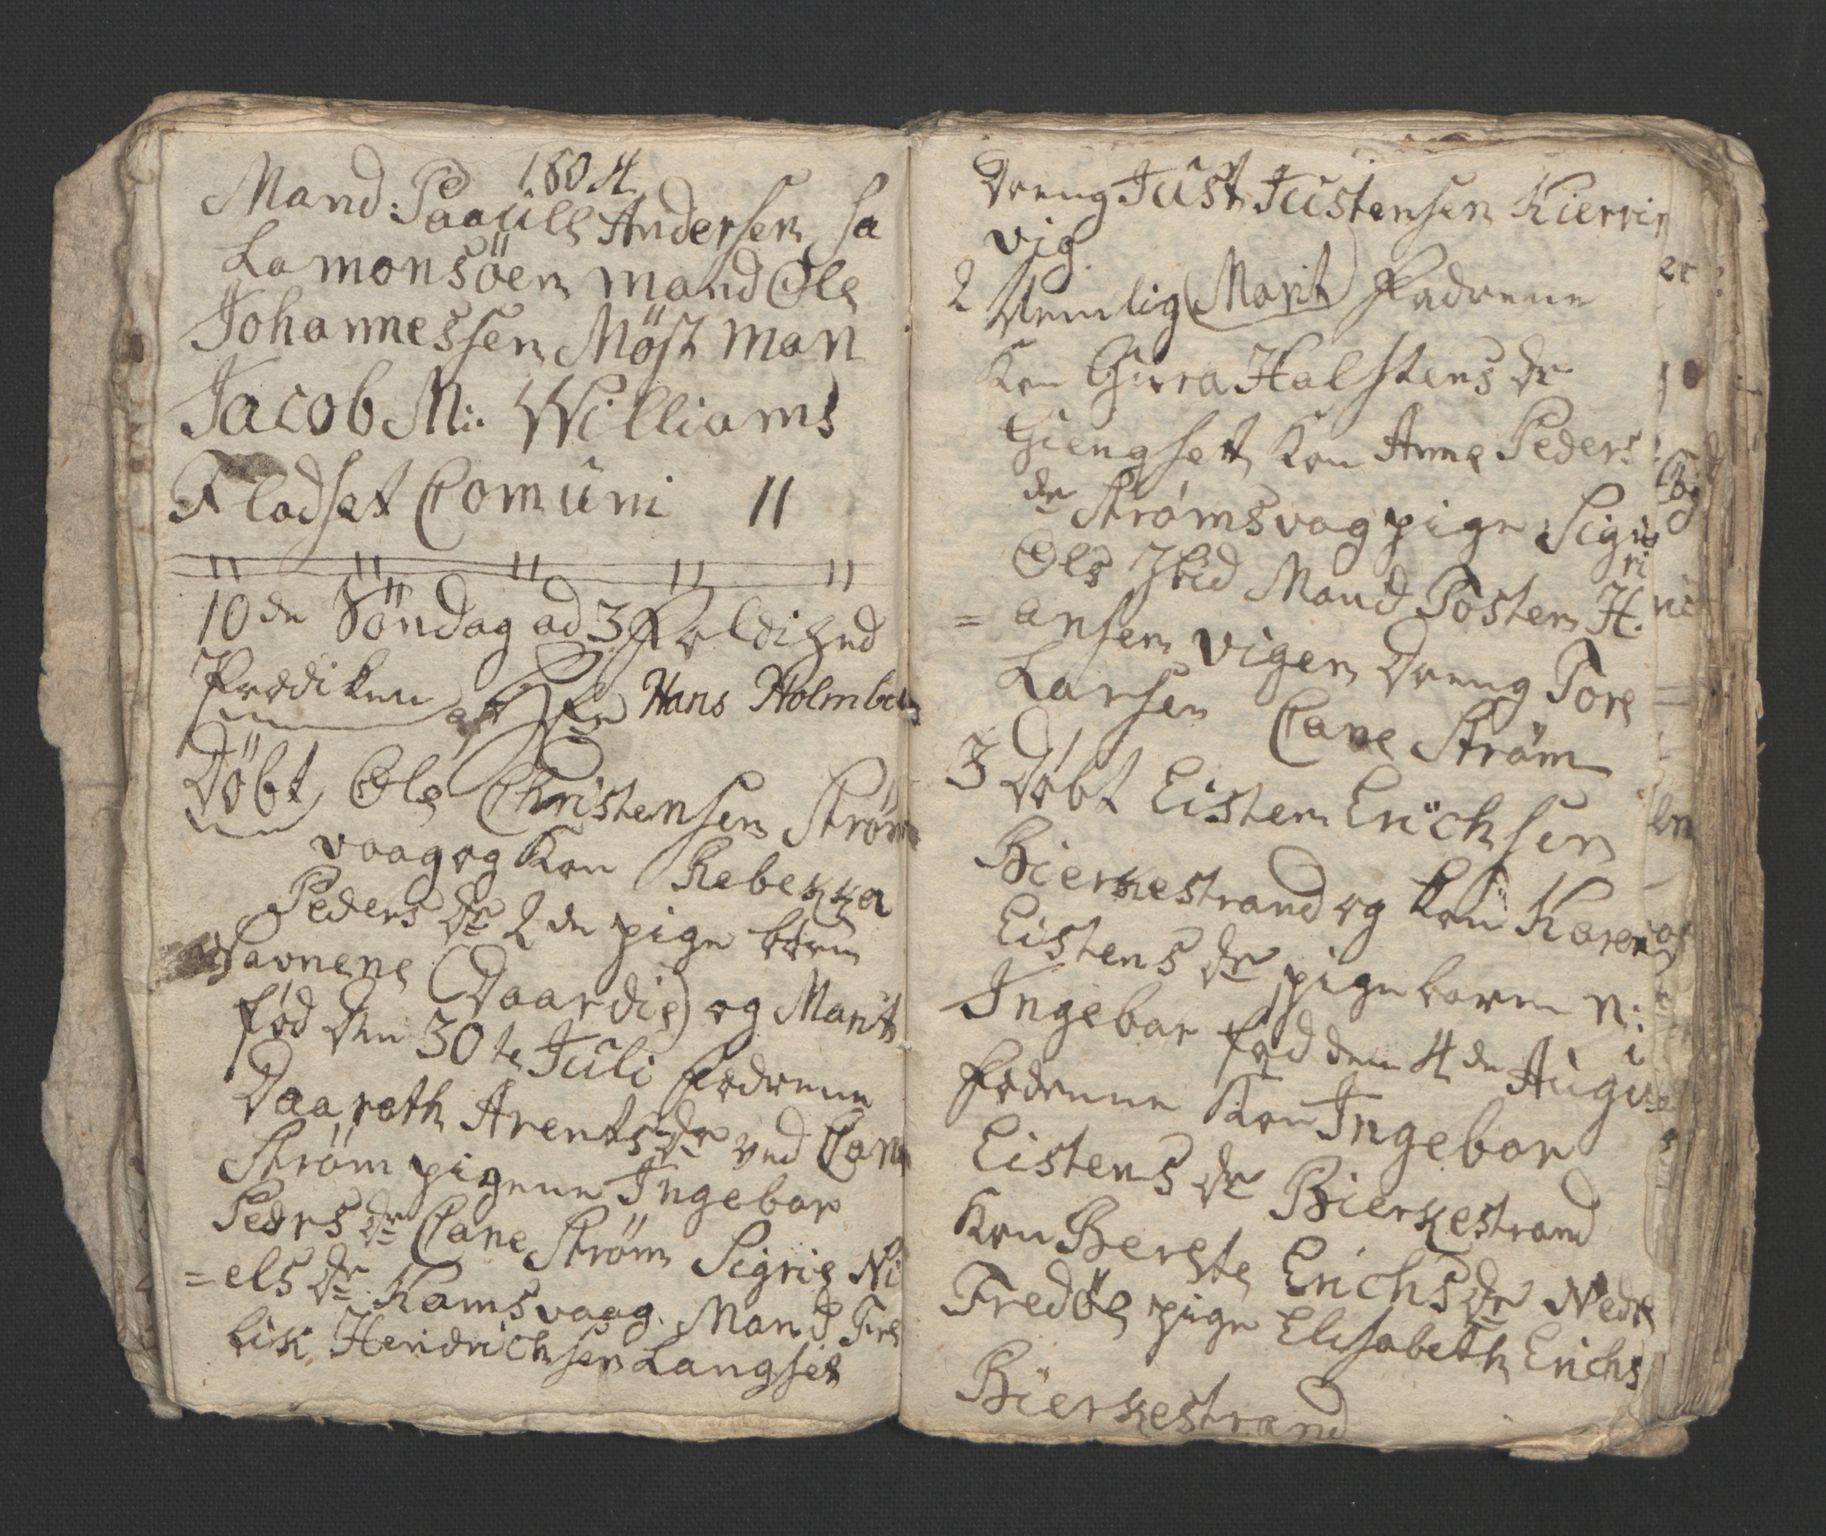 1804
Mand: Paaúls Andersen Sa
Lamonsöen mand Ole
Johannessen Möst man
Jacob M: Williams
Fladset Comúni 11
10de Söndag ad 3foldighed
Prædiken af Hr Hans Holmboe
Döbt Ole Christensen Strøm
vaag og Kon Rebekka
Peders dr 2de pige børn
Navnene (Daardie) og Marit
fød den 30te Júli Fadrene
Daarath Arents dr ved Cane
Strøm pigene Ingebor
Peders dr Cane Strøm Sigrie Ni
=els dr Ramsvaag. Mand Tre
bik Hendrichsen Langset
Dreng Júst Jústensen Kiervin
vig
2 Nemlig (Marit) Fadrene
Kon Gura Halstens dr
Giengset Kon Anne Peders
dr Strømsvag pige Sigri
Ols Ibid Mand Tosten H.
= ansen vigen Dreng Tore
Larsen Cane Strøm
3 Døbt Eisten Erichsen
Bierkestrand og Kon Karen
Eistens dr pige barn N:
Ingebar fød den 4de Augu
Fadrene Kon Ingebor
Eistens dr Bierkestrand
Kon Berete Erichs dr Nedr
Fredøe pige Elisabeth Erichs
Bierkestrand